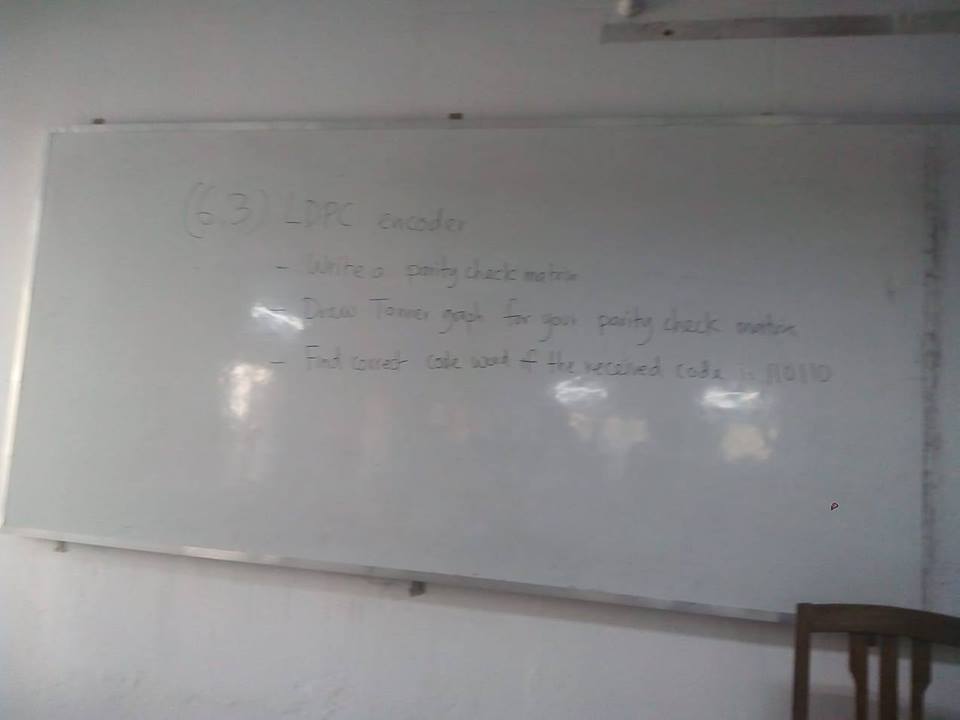 (6,3) LDPC encoder
- Write a parity check matrix
- Draw Tanner graph for your parity check matrix
- Find correct code word if the received code is 110110